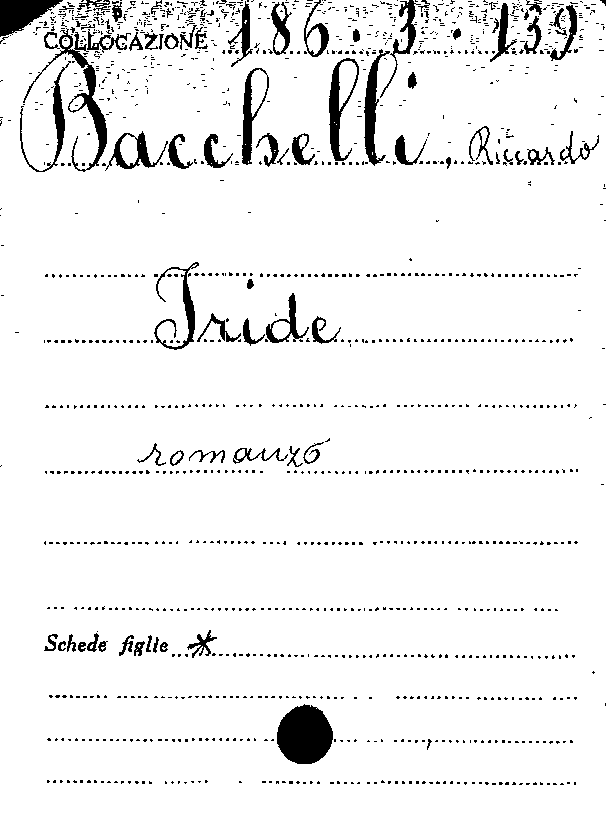 COLLOCAZIONE 186.3.139
Bacchelli, Riccardo
Iride
romanzo
Schede figlie *